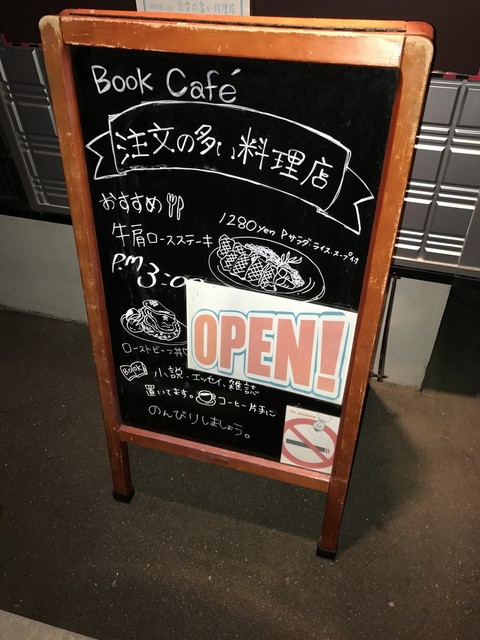 注文の多い料理店
Book Café
注文の多い料理店
おすすめ
1280yen
サラダ・ライス・スープ付
牛肩ロースステーキ
P.M
3:0
OPEN!
ローストビーフ丼
Book 小説・エッセイ、雑誌
置いてます。 コーヒー片手に
のんびりしましょう。